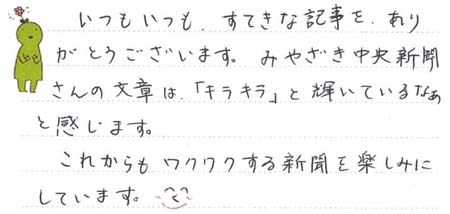 いつもいつも、すてきな記事を、あり
がとうございます。みやざき中央新聞
さんの文章は、「キラキラ」と輝いているなぁ
と感じます。
これからもワクワクする新聞を楽しみに
しています。